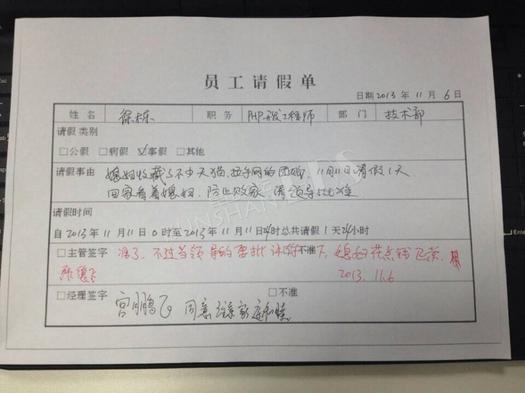 员工请假单
日期2013年11月6日
姓名 徐栋 职务 PHP工程师 部门 技术部
请假类别
□公假 □病假 ☑事假 □其他
请假事由 媳妇收藏了不少天猫、拉手网的团购，11月11日请假1天
回家看着媳妇，防止败家，请领导批准
请假时间
自2013年11月11日0时至2013年11月11日24时总共请假1天24小时
□主管签字 准了，不过当领导的要批 □不准
2013.11.6
□经理签字 宫鹏飞 同意 □不准